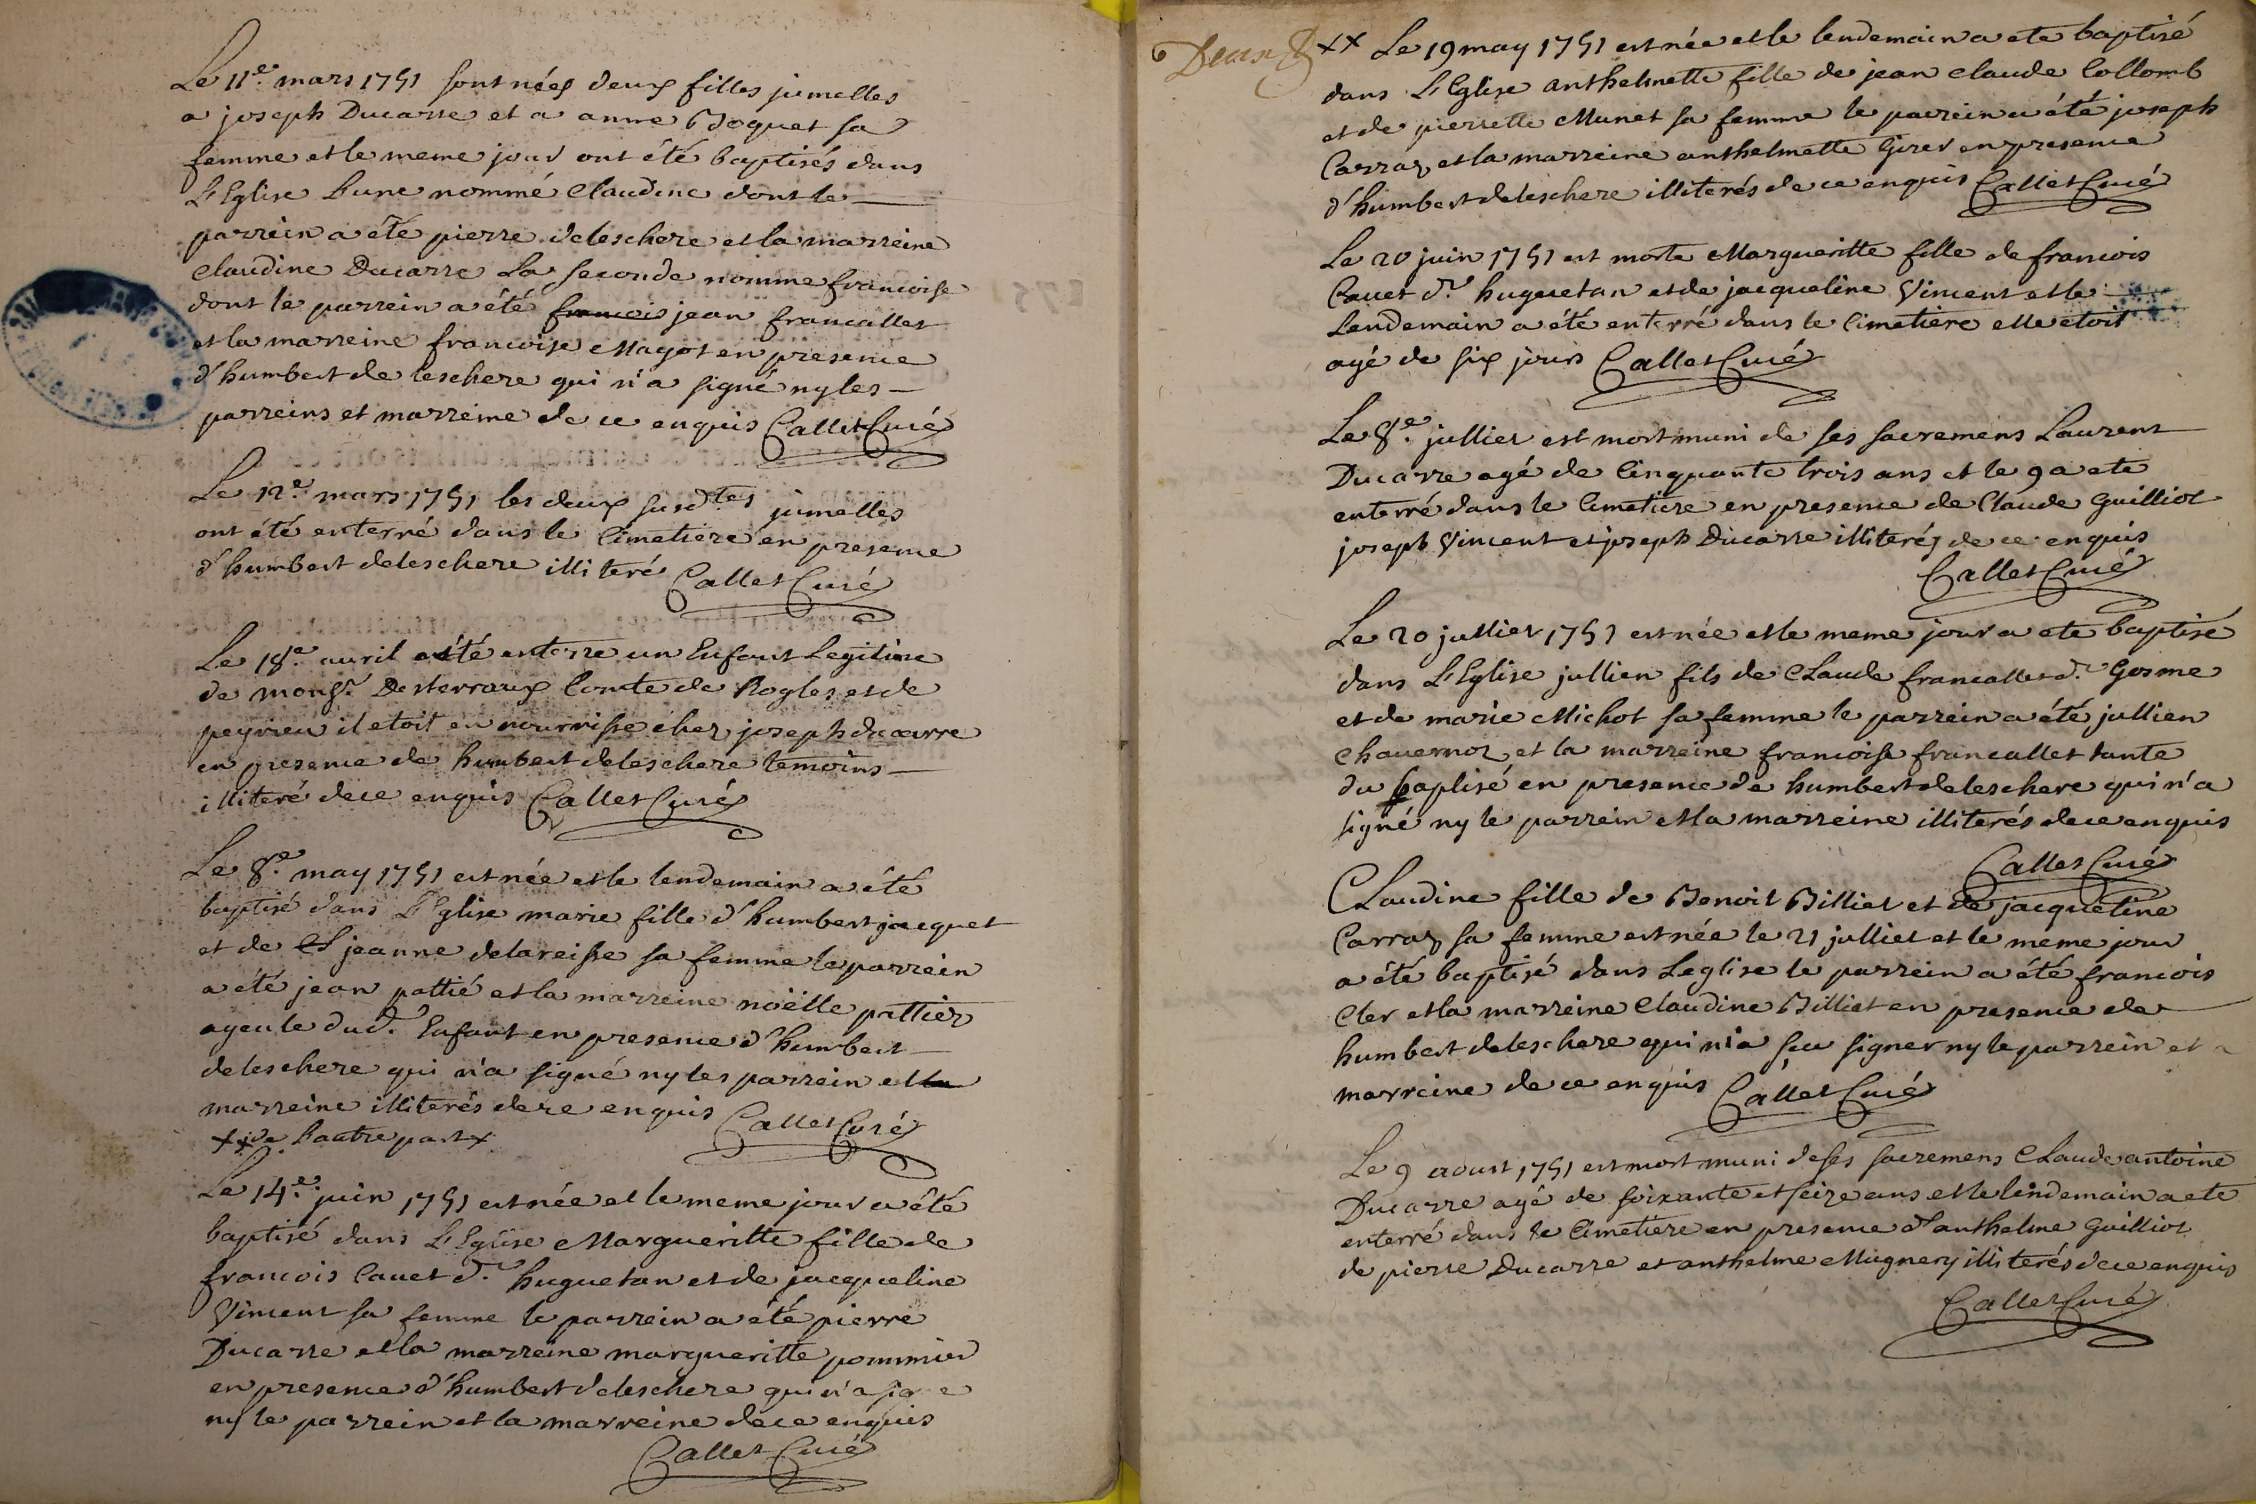 Le 11e. mars 1751 sont nées deux filles jumelles
a joseph Ducarre et a anne Boquet sa
femme et le meme jour ont été baptisés dans
L'Eglise L'une nommé Claudine dont le
parrein a été pierre deleschere et la marreine
Claudine Ducarre La seconde nomme francoise
dont le parrein a été francois jean francallet
et la marreine francoise Magot en presence
d'humbert de leschere qui n'a signé ny les
parreins et marreine de ce enquis Callet Curé
Le 12e. mars 1751 les deux susdtes jumelles
ont été enterré dans le Cimetiere en presence
d'humbert deleschere illiteré Callet Curé
Le 18e. avril a été enterre un Enfant Legitime
de monsr. Desterraux Comte de Rogles et de
peyrieu il etoit en nourrisse chez joseph ducarre
en presence de humbert deleschere temoins
illiteré de ce enquis Callet Curé
Le 8e. may 1751 est née et le lendemain a été
baptisé dans L'Eglise marie fille d'humbert jacquet
et de jeanne delareisse sa femme le parrein
a été jean pattié et la marreine noëlle pattier
ayeule dud. Enfant en presence d'humbert
deleschere qui n'a signé ny les parrein et la
marreine illiterés de ce enquis Callet Curé
xx de L'autre part x
Le 14e. juin 1751 est née et le meme jour a été
baptisé dans L'Eglise Margueritte fille de
francois Cauet dt. huguetan et de jacqueline
Vincent sa femme le parrein a été pierre
Ducarre et la marreine margueritte pommier
en presence d'humbert deleschere qui n'a signe
ny le parrein et la marreine de ce enquis
Callet Curé
Deux
xx Le 19 may 1751 est née et le lendemain a ete baptisé
dans L'Eglise anthelmette fille de jean Claude Collomb
et de pierrette Munet sa femme le parrein a été joseph
Carraz et la marreine anthelmette Girer en presence
d'humbert deleschere illiterés de ce enquis Callet Curé
Le 20 juin 1751 est morte Margueritte fille de francois
Cauet dt. huguetan et de jacqueline Vincent et le
Lendemain a été enterré dans le Cimetiere elle etoit
agé de six jours Callet Curé
Le 8e. julliet est mort muni de ses sacremens Laurent
Ducarre agé de Cinquante trois ans et le 9 a ete
enterré dans le Cimetiere en presence de Claude Guilliot
joseph Vincent et joseph Ducarre illiterés de ce enquis
Callet Curé
Le 20 julliet 1751 est née et le meme jour a ete baptisé
dans L'Eglise jullien fils de Claude francallet dt. Gosme
et de marie Michot sa femme le parrein a été jullien
Chavernoz et la marreine francoise francallet tante
du baptisé en presence de humbert deleschere qui n'a
signé ny le parrein et la marreine illiterés de ce enquis
Callet Curé
Claudine fille de Benoit Billiet et de jacqueline
Carraz sa femme est née le 21 julliet et le meme jour
a été baptisé dans Leglise le parrein a été francois
Cler et la marreine Claudine Billiet en presence de
humbert deleschere qui n'a sçu signer ny le parrein et
marreine de ce enquis Callet Curé
Le 9 aoust 1751 est mort muni de ses sacremens Claude antoine
Ducarre agé de soixante et seize ans et le lendemain a ete
enterré dans le Cimetiere en presence d'anthelme Guilliot
de pierre Ducarre et anthelme Mugnery illiterés de ce enquis
Callet Curé